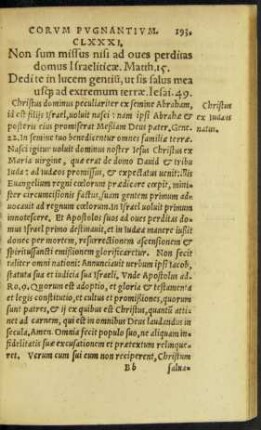 CORVM PVGNANTIVM. 193.
CLXXXI.
Non sum missus nisi ad oues perditas
domus Israeliticæ. Matth. 15.
Dedi te in lucem gentiū, ut sis salus mea
usq; ad extremum terræ. Iesai. 49.
Christus dominus peculiariter ex semine Abraham,
Christus ex Iudæis natus.
id est filijs Israel, uoluit nasci: nam ipsi Abrahæ &
posteris eius promiserat Messiam Deus pater, Gene.
22. In semine tuo benedicentur omnes familiæ terræ.
Nasci igitur uoluit dominus noster Iesus Christus ex
Maria uirgine, quæ erat de domo Dauid & tribu
Iuda: ad iudæos promissus, & expectatus uenit: illis
Euangelium regni cœlorum prædicere cœpit, mini-
ster circumcisionis factus, suam gentem primum ad-
uocauit ad regnum cœlorum. In Israel uoluit primum
innotescere. Et Apostolos suos ad oues perditas do-
mus Israel primo destinauit, et in Iudæa manere iussit
donec per mortem, resurrectionem ascensionem &
spiritussancti emissionem glorificaretur. Non fecit
taliter omni nationi: Annunciauit uerbum ipsi Iacob,
statuta sua et iudicia sua Israeli, Vnde Apostolus ad
Ro. 9. Quorum est adoptio, et gloria & testamenta
et legis constitutio, et cultus et promissiones, quorum
sunt patres, & ij ex quibus est Christus, quantū atti-
net ad carnem, qui est in omnibus Deus laudandus in
secula, Amen. Omnia fecit populo suo, ne aliquam in-
fidelitatis suæ excusationem et prætextum relinque-
ret. Verum cum sui eum non reciperent, Christum
Bb salua-